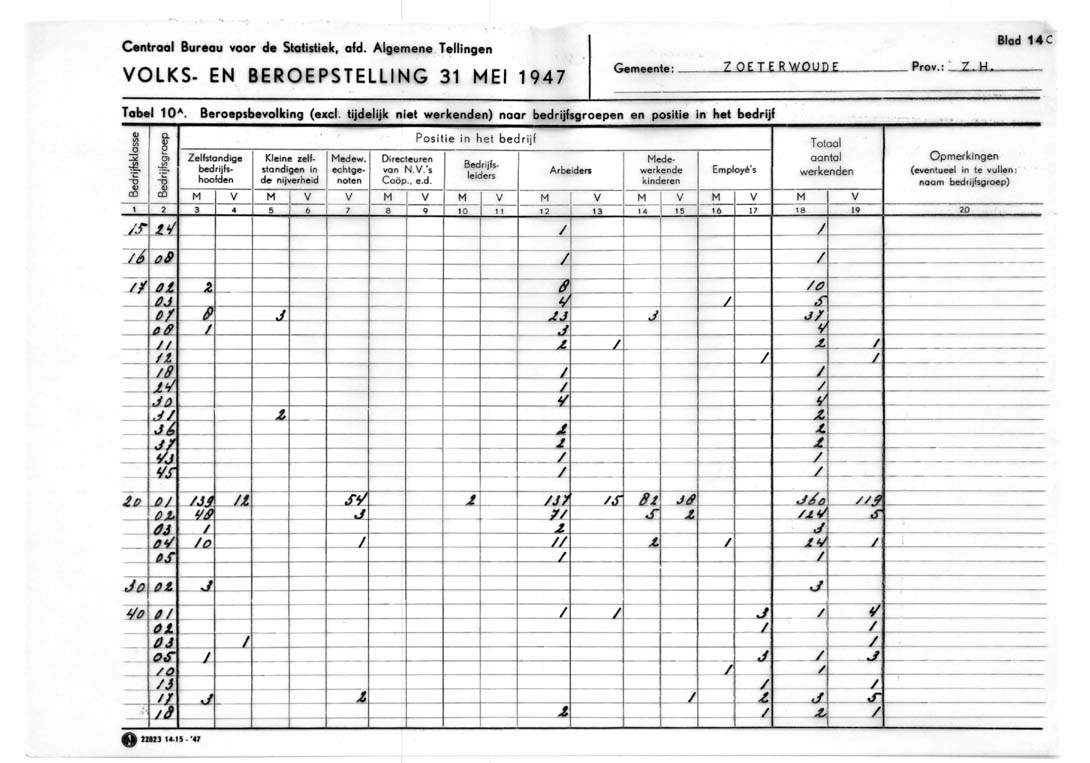 Blad 14 C
Centraal Bureau voor de Statistiek, afd. Algemene Tellingen
VOLKS- EN BEROEPSTELLING 31 MEI 1947
Gemeente: ZOETERWOUDE Prov.: Z.H.
Tabel 10A. Beroepsbevolking (excl. tijdelijk niet werkenden) naar bedrijfsgroepen en positie in het bedrijf
Bedrijfsklasse
Bedrijfsgroep
Positie in het bedrijf
Zelfstandige bedrijfs-hoofden
Kleine zelf-standigen in de nijverheid
Medew. echtge-noten
Directeuren van N.V.'s Coöp., e.d.
Bedrijfs-leiders
Arbeiders
Mede-werkende kinderen
Employé's
Totaal aantal werkenden
Opmerkingen (eventueel in te vullen: naam bedrijfsgroep)
M V M V V M V M V M V M V M V M V
1 2 3 4 5 6 7 8 9 10 11 12 13 14 15 16 17 18 19 20
15 24 1 1
16 08 1 1
17 02 2 8 10
03 4 1 5
07 8 3 23 3 37
08 1 3 4
11 2 1 2 1
12 1 1
18 1 1
24 1 1
30 4 4
31 2 2
36 2 2
37 2 2
43 1 1
45 1 1
20 01 139 12 54 2 137 15 82 38 360 119
02 48 3 71 5 2 124 5
03 1 2 3
04 10 1 11 2 1 24 1
05 1 1
30 02 3 3
40 01 1 1 3 1 4
02 1 1
03 1 1
05 1 3 1 3
10 1 1
13 1 1
17 3 2 1 2 3 5
18 2 1 2 1
22823 14-15 - '47